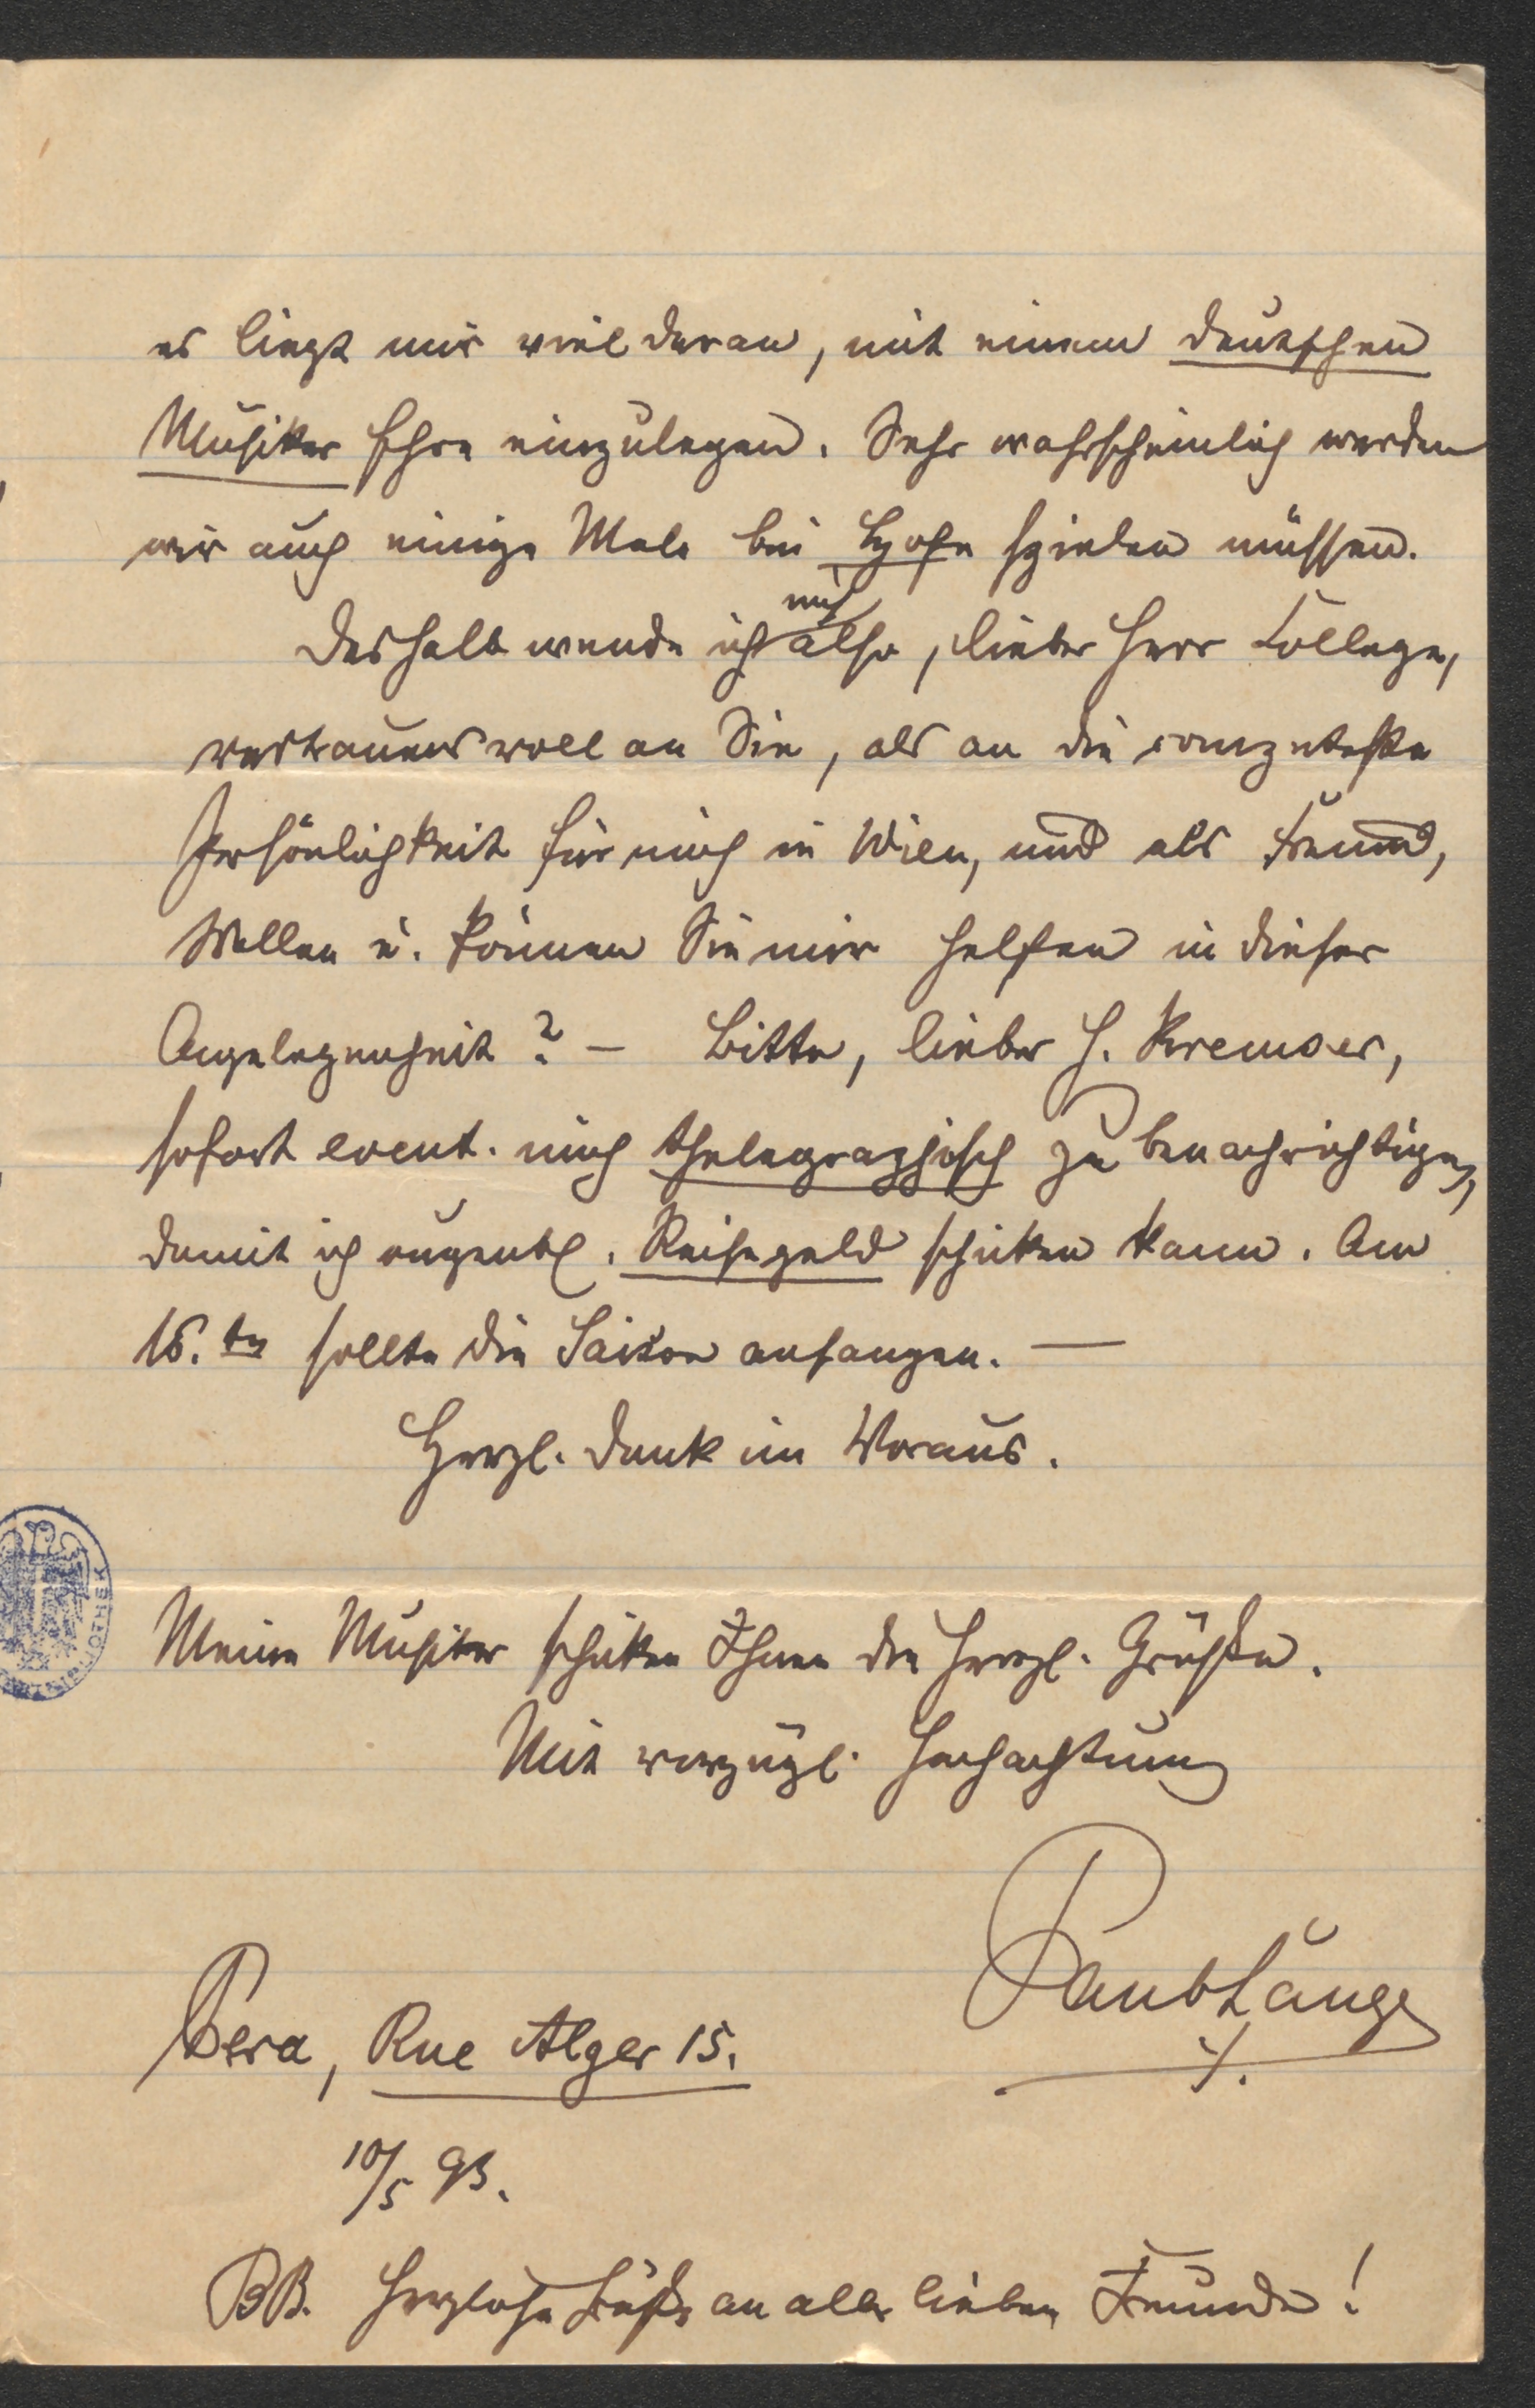 es liegt mir viel daran, mit einem deutschen
Musiker Ehre einzulegen. Sehr wahrscheinlich werden
wir auch einige Male bei Hofe spielen müssen.
mich
Deshalb wende ich also, lieber Herr College,
vertrauensvoll an Sie, als an die competenteste
Persönlichkeit für mich in Wien, und als Freund,
Wollen u. können Sie mir helfen in dieser
Angelegenheit? – Bitte, lieber H. Kremser,
sofort event. mich thelegraphisch zu benachrichtigen,
damit ich augenbl. Reisegeld schicken kann. Am
15.ten sollte die Saison anfangen. —
Herzl. Dank im Voraus.
BIBLIOTHEK
Meine Musiker schicken Ihnen die herzl. Grüße.
Mit vorzügl. Hochachtung
Paul Lange
Pera, Rue Alger 15.
10/5 93.
Herzliche Grüße an alle lieben Freunde!